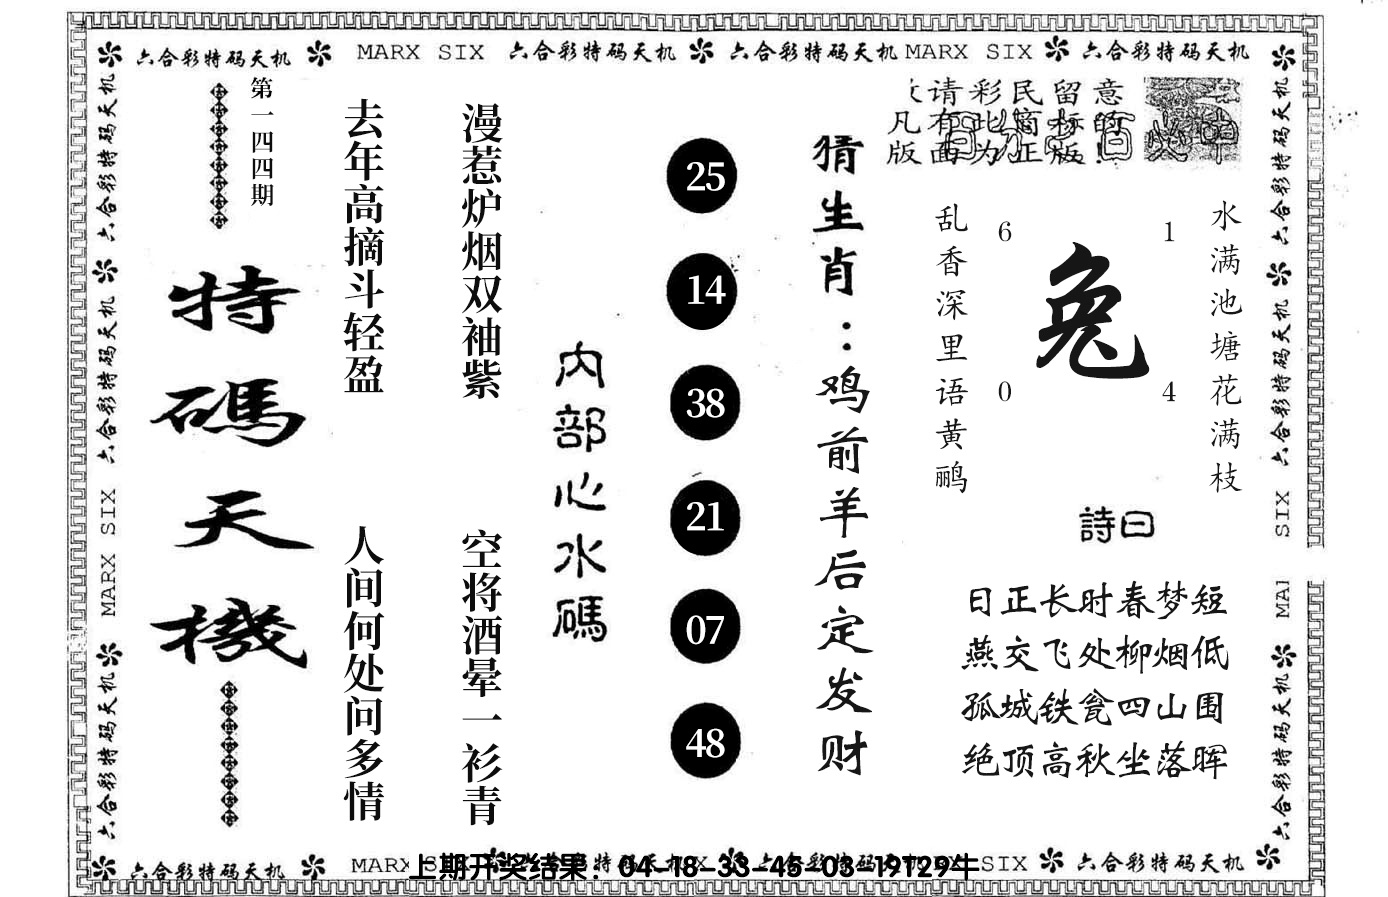 六合彩特码天机 MARX SIX 六合彩特码天机 六合彩特码天机 MARX SIX 六合彩特码天机
请彩民留意
凡有此商标的
版面为正版!
水满池塘花满枝
1
4
兔
6
0
乱香深里语黄鹂
詩曰
日正长时春梦短
燕交飞处柳烟低
孤城铁瓮四山围
绝顶高秋坐落晖
猜生肖:鸡前羊后定发财
25
14
38
21
07
48
内部心水碼
漫惹炉烟双袖紫
空将酒晕一衫青
去年高摘斗轻盈
人间何处问多情
第一四四期
特碼天機
六合彩特码天机
六合彩特码天机
MARX SIX
六合彩特码天机
六合彩特码天机
六合彩特码天机
SIX
六合彩特码天机
六合彩特码天机 MARX
SIX 六合彩特码天机
上期开奖结果：04-18-33-45-03-19T29牛